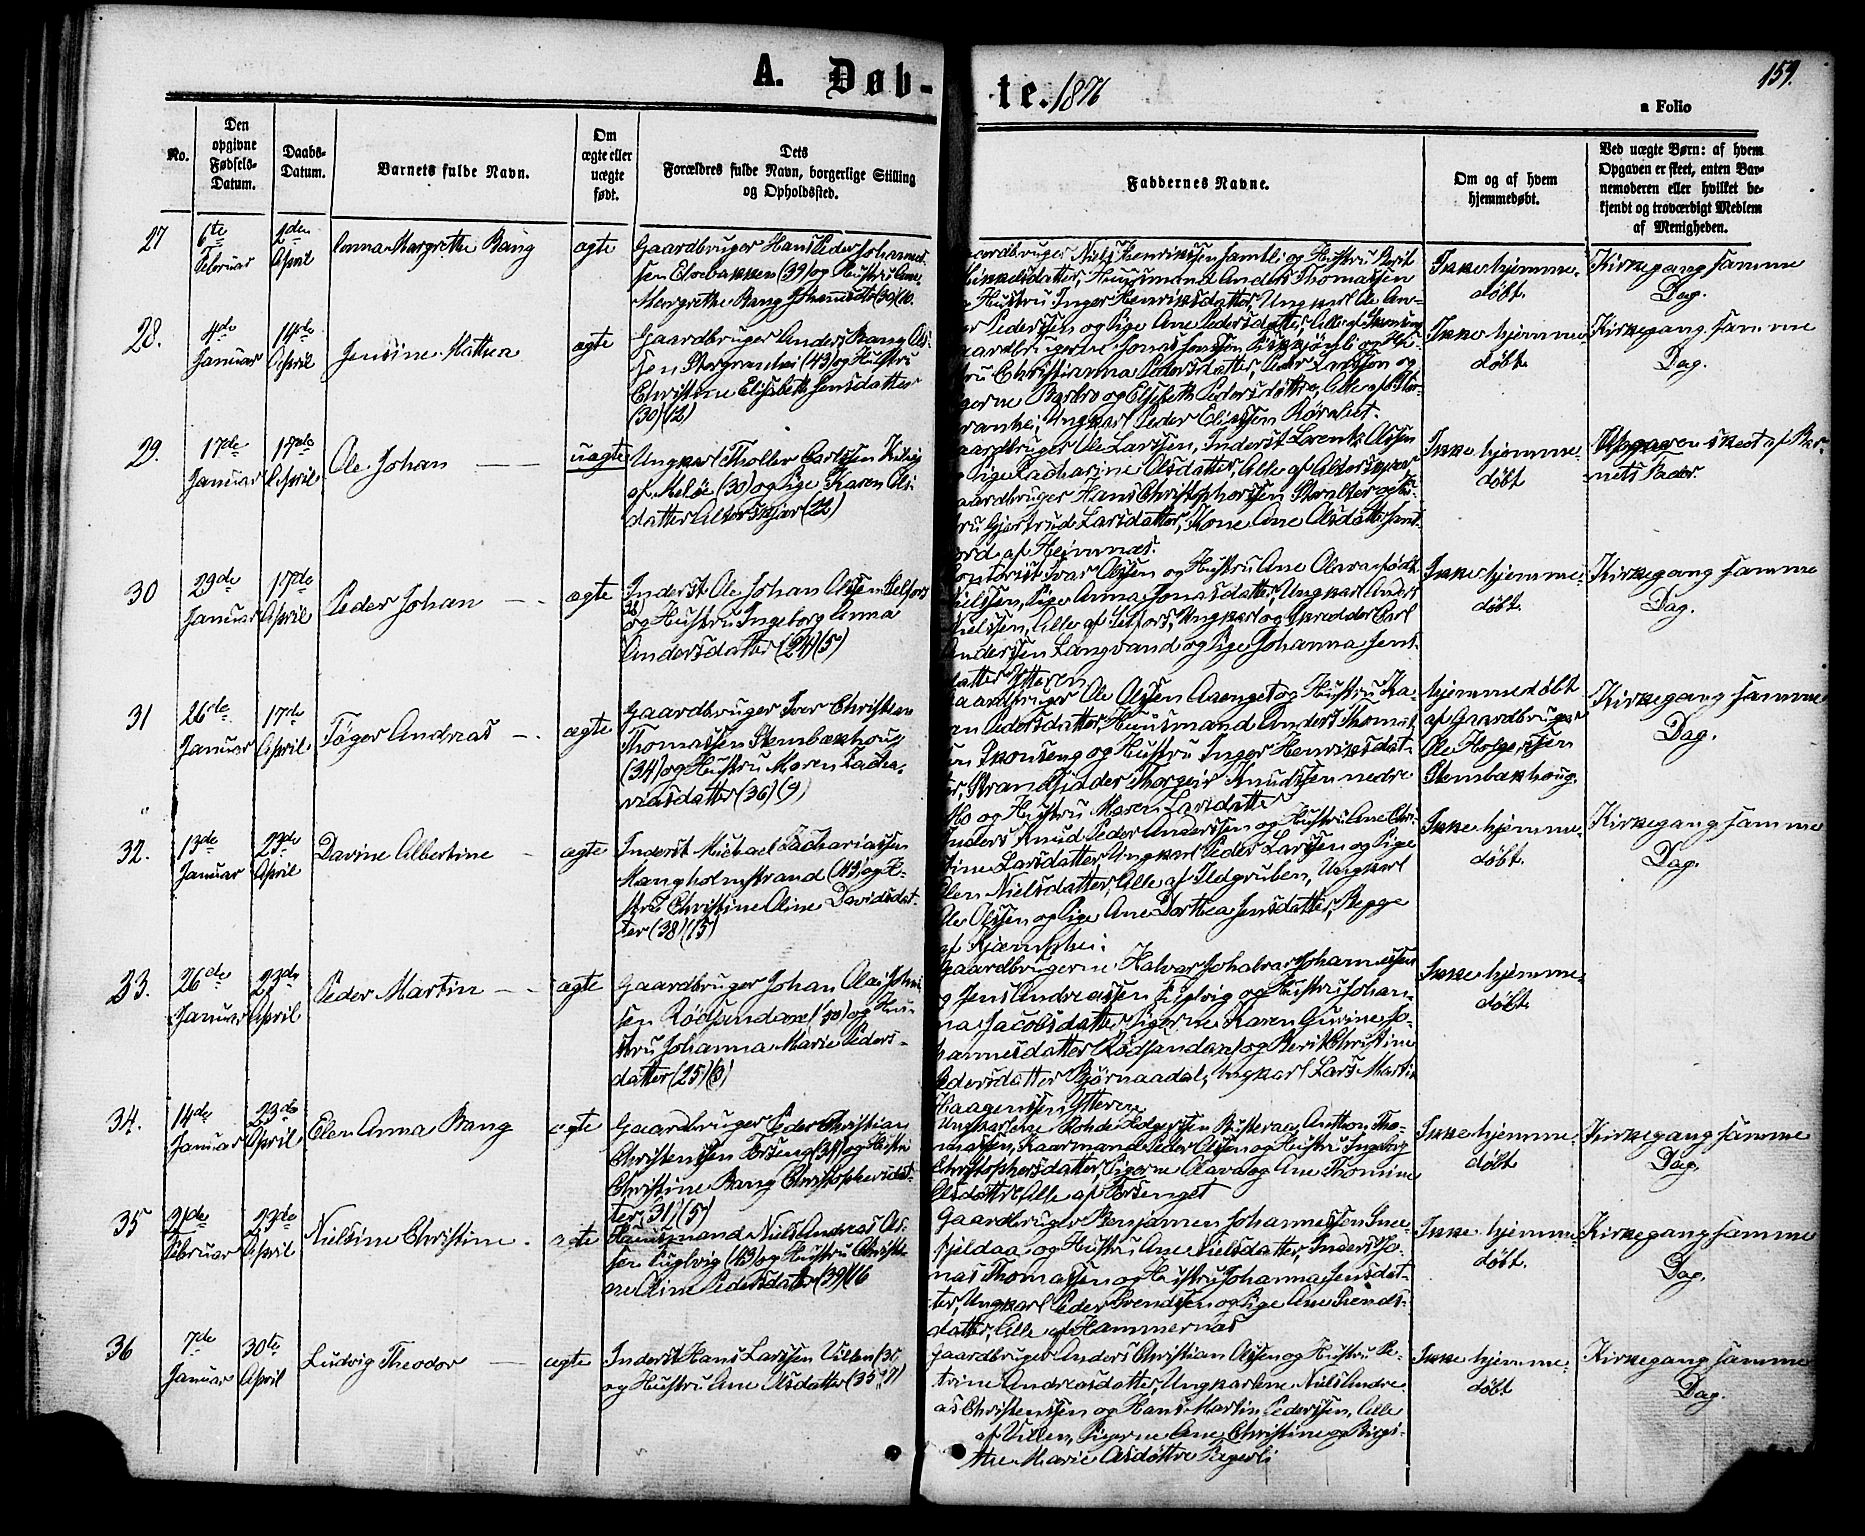 A. Døb-te. 1876
159.
a Folio
No.
Den opgivne Fødsels-Datum.
Daabs-Datum.
Barnets fulde Navn.
Om ægte eller uægte født.
Dets Forældres fulde Navn, borgerlige Stilling og Opholdssted.
Faddernes Navne.
Om og af hvem hjemmedøbt.
Ved uægte Børn: af hvem Opgaven er skeet, enten Barnemoderen eller hvilket bekjendt og troværdigt Medlem af Menigheden.
27
6te Februar
2den April
Anna Margrethe Bang
ægte
Gaardbruger Hans Peder Johannes-
sen (39) og Hustru Ane
Margrethe Bang
Gaardbruger Niels Henrikssen og Hustru Berit
Huusmand Anders Thomassen
og Hustru Inger Henriksdatter, Ungkarl Ole An-
Pederssen og Pige Ane Pedersdatter, Alle af
Ikke hjemme-
døbt.
Kirkegang samme
Dag.
28.
4de Januar
14de April
Jensine Mathea
ægte
Gaardbruger Anders Bang Ol-
sen (43) og Hustru
Christine Elisabeth Jensdatter
(30) (12)
Gaardbrugerne Jonas Jonssen og Hu-
stru Christianna Pedersdatter, Peder Larssen og
Pigerne Barbro og Elsebeth Pedersdøttre, Alle af Stor-
Ungkarl Peder Eliassen
Ikke hjemme
døbt.
Kirkegang samme
Dag.
29.
17de Januar
17de April
Ole Johan
uægte
Ungkarl Tholler Carlssen
af Meløe (30) og Pige Karen Ols-
datter Alterskjær (22)
Gaardbruger Ole Larssen, Inderst Lorents Olssen
Pige Zacharine Olsdatter, Alle af Alterskjær
Gaardbruger Hans Christophersen og Hu-
stru Gjertrud Larsdatter, Kone Ane Olsdatter
af Hemnæs.
Ikke hjemme-
døbt
Opgaven skeet af Bar-
nets Fader.
30
29de Januar
17de April
Peder Johan
ægte
Inderst Ole Johan Olssen Selfors
(28) og Hustru Ingeborg Anna
Andersdatter (24) (5)
Kontorist Ivar Olssen og Hustru Ane Olava født
Nielssen, Pige Anna Jonasdatter, Ungkarl Anders
Nielssen, Alle af Selfors, Ungkarl og Carl
Anderssen Langvand og Pige Johanna Jens-
datter Ytteren
Ikke hjemme-
døbt.
Kirkegang samme
Dag.
31
26de Januar
17de April
Tøger Andreas
ægte
Gaardbruger Iver Christian
Thomassen Stenbækhoug
(34) og Hustru Maren Zacha-
riasdatter (36) (9)
Gaardbruger Ole Olssen Aenget og Hustru Ka-
ren Pedersdatter, Huusmand Anders Thomas-
sen Skonseng og Hustru Inger Henriksdat-
ter, Strandsidder Thorgeir Knudssen nedre
Mo og Hustru Maren Larsdatter
hjemmedøbt
af Gaardbruger
Ole Holgerssen
Stenbækhoug.
Kirkegang samme
Dag.
32.
13de Januar
23de April
Davine Albertine
ægte
Inderst Michael Zachariassen
Mangholmstrand (43) og Hu-
stru Christine Oline Davidsdat-
ter (38) (15)
Inderst Knud Peder Anderssen og Hustru Ane Chri-
stine Larsdatter, Ungkarl Peder Larssen og Pige
Elen Nielsdatter, Alle af Ildgruben, Ungkarl
Ole Olssen og Pige Ane Dorthea Jensdatter, Begge
Ikke hjemme-
døbt.
Kirkegang samme
Dag.
33.
26de Januar
23de April
Peder Martin
ægte
Gaardbruger Johan Olai Johns-
sen Rødsandaxel (30) og Hu-
stru Johanna Marie Peders-
datter (25) (3)
Gaardbrugerne Halvar Johannessen
og Jens Andreassen Fuglvig og Hustru Johan-
na Jacobsdatter, Pigerne Karen Gurine Jo-
hannesdatter Rødsandaxel og Berit Christine
Pedersdatter Bjørnaadal, Ungkarl Lars Martin
Haagenssen Ytteren
Ikke hjemme-
døbt.
34.
14de Januar
23de April
Elen Anna Bang
ægte
Gaardbruger Peder Christian
Christenssen Forseng (34) og Hustru
Christine Bang Christophersdat-
ter (31) (5)
Ungkarlene Rohde Holgerssen Buskeraa, Anthon Tho-
massen, Kaarmand Peder Olssen og Hustru Ingeborg
Christophersdatter, Pigerne Olava og Ane Thomine
Olsdøttre, Alle af Forsenget
Ikke hjemme-
døbt
Kirkegang samme
Dag.
35
21de Februar
23de April
Nielsine Christine
ægte
Huusmand Niels Andreas Ols-
sen Fuglvig (43) og Hustru Christi-
ne Oline Pedersdatter (39) (16
Gaardbruger Benjamen Johannessen Sne-
fjeldaa og Hustru Ane Nielsdatter, Inderst Jo-
nas Thomassen og Hustru Johanna Jensdat-
ter, Ungkarl Peder Svendssen og Pige Ane Svends-
datter, Alle af Hammernæs
Ikke hjemme-
døbt.
Kirkegang samme
Dag.
36
7de Januar
30te April
Ludvig Theodor
ægte
Inderst Hans Larssen Villen (35
og Hustru Ane Olsdatter (35)
Gaardbruger Anders Christian Olssen og Hustru Pe-
trine Andreasdatter, Ungkarlene Niels Andre-
as Christenssen og Hans Martin Pederssen, Alle
af Villen, Pigerne Ane Christine og Birgi-
the Marie Olsdøttre
Ikke hjemme-
døbt
Kirkegang samme
Dag.